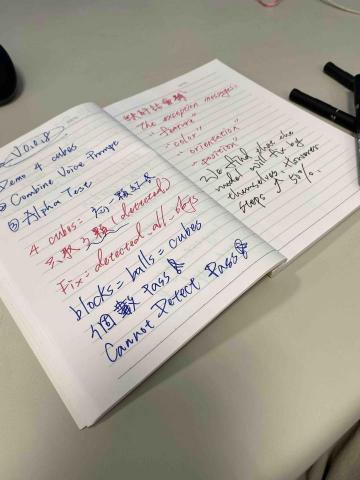 V0.0.8
Demo 4 cubes
② Combine Voice Prompt
③ Alpha Test
4 cubes:
(detected)
Fix: detected_all_objs
blocks = balls = cubes
個數 pass
Cannot Detect Pass
The exception messages:
"feature"
"color"
"orientation"
"position"
We find that the
model will fix by
themselves.
steps ↑ 50%.